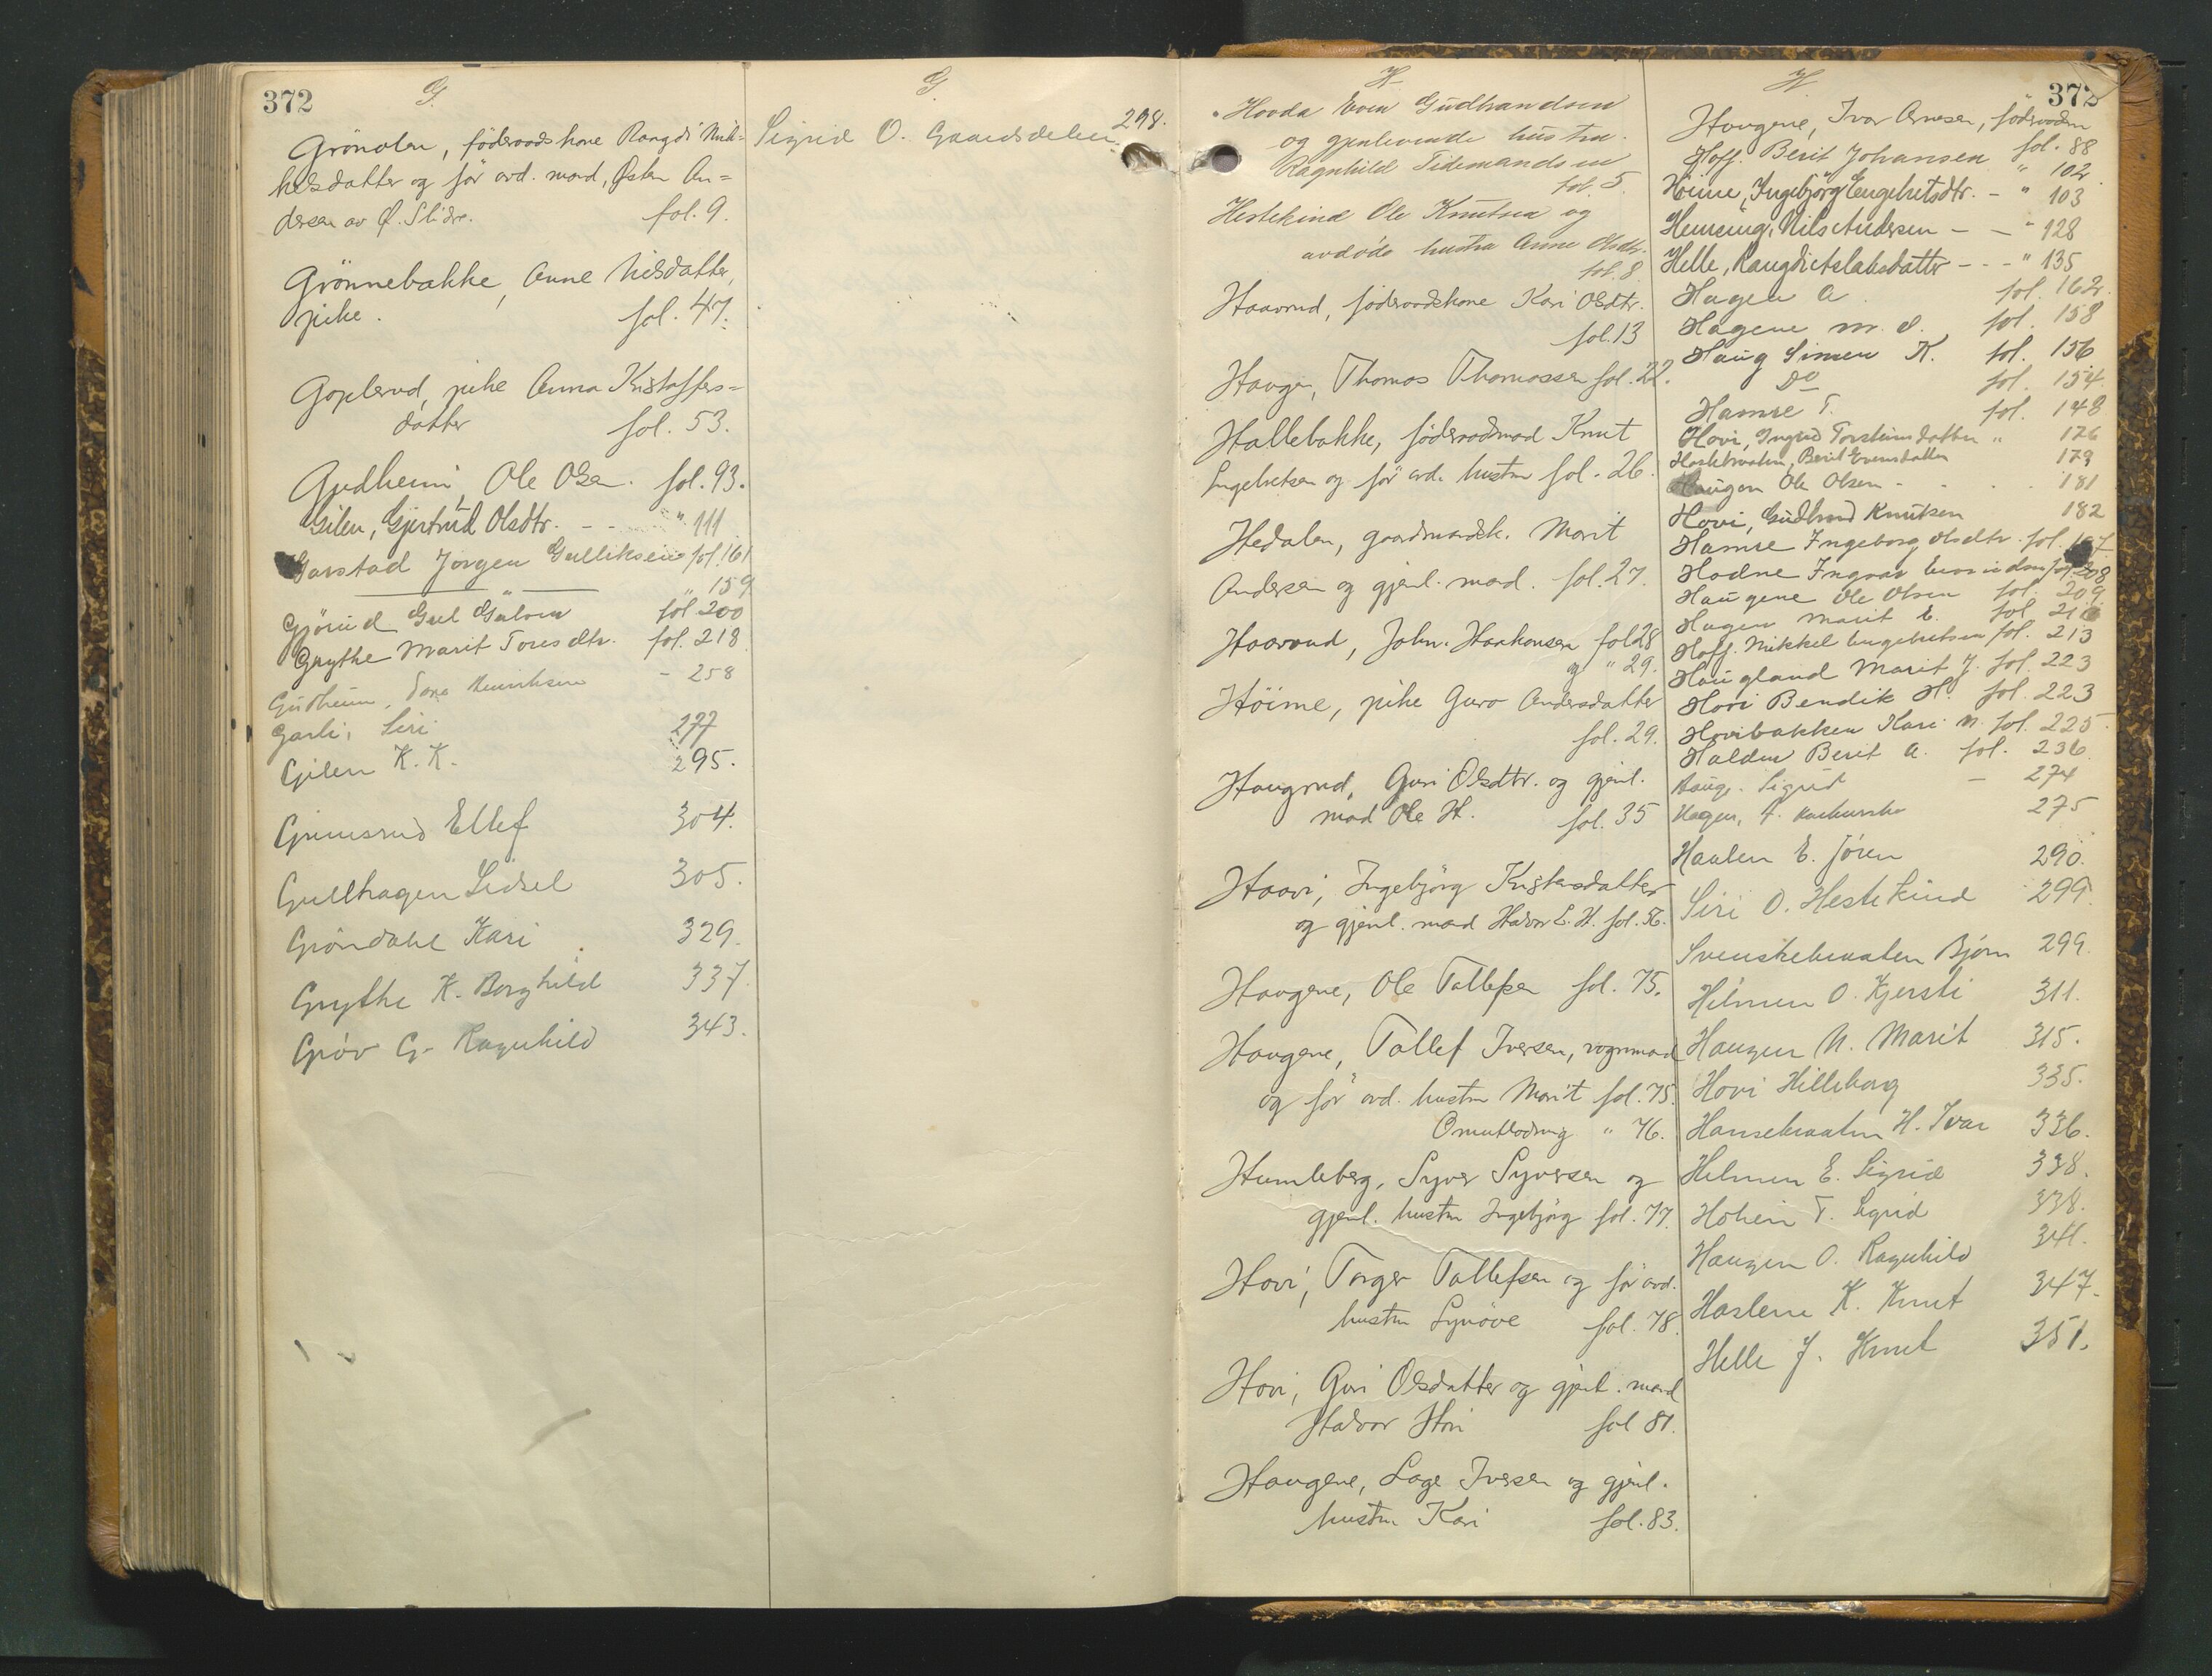 372
G.
Grönolen, föderaadskone Rangdi Mik-
helsdatter og før avd. mand, Østen An-
dersen av Ø. Slidre. fol. 9.
Grönnebakke, Anne Nilsdatter,
pike. fol. 47.
Goplerud, pike Anna Kristoffers-
datter fol. 53.
Gudheim, Ole Olsen. fol. 93.
Gilen, Gjertrud Olsdtr. - - " 111
Garstad Jörgen Gulliksen fol. 161
" " 159
Gjörud Gul Gulsen fol 200
Grythe Marit Toresdtr. fol. 218
Gudheim, Tora Henriksen - 258
Garli, Siri 277
Gilen K. K. 295.
Grimsrud Ellef 304.
Gullhagen Sidsel 305.
Gröndahl Kari 329.
Grythe K. Borghild 337.
Gröv G. Ragnhild 343.
G.
Sigrid O. Gaardsdelen 298.
H
Hovda Even Gudbrandsen
og gjenlevende hustru
Ragnhild Tidemandsen
fol. 5.
Hestekind Ole Knutsen og
avdöde hustru Anne Olsdtr.
fol. 8
Haavrud, föderaadskone Kari Olsdtr.
fol. 13
Haugen, Thomas Thomassen fol. 22.
Hallebakke, föderaadmand Knut
Engebretsen og før avd. hustru fol. 26.
Hedalen, gaardmandsk. Marit
Andersen og gjenl. mand. fol. 27.
Haavrud, John Haakensen fol 28
og " 29.
Höime, pike Guro Andersdatter
fol. 29.
Haugrud, Guri Olsdtr. og gjenl.
mand Ole H. fol. 35
Haavi, Ingebjörg Kristensdatter
og gjenl. mand Halvor E. H. fol. 56.
Haugene, Ole Tollefsen fol. 75.
Haugene, Tollef Iversen, vognmand
og før avd. hustru Marit fol. 75.
Omutlodning " 76.
Humleberg, Syver Syversen og
gjenl. hustru Ingebjörg fol. 77.
Hovi, Torger Tollefsen og før avd.
hustru Synöve fol. 78.
Hovi, Guri Olsdatter og gjenl. mand
Halvor Hovi fol 81.
Haugene, Lage Iversen og gjenl.
hustru Kari fol. 83.
H.
372
Haugene, Ivar Arnesen, föderaadm
fol. 88
Hoff. Berit Johansen " 102
Höime, Ingebjörg Engebretsdtr. - " 103
Hensing, Nils Andersen - - " 128
Helle, Rangdi Aslaksdatter - - - " 135
Hagen A. fol. 162.
Hagene M. O. fol. 158
Haug Simen K. fol. 156
Do fol. 154.
Hamre T. fol. 148
Hovi, Ingrid Torsteinsdatter " 176
Haslebraaten, Berit Evensdatter 179
Haugen Ole Olsen - - - 181
Hovi, Gudbrand Knutsen 182
Hamre Ingeborg Olsdtr. fol.
Hodne Ingvar fol. 208
Haugene Ole Olsen fol. 209
Hagen Marit E. fol 210
Hoff. Mikkel Engebretsen fol. 213
Haugland Marit J. fol. 223
Hovi Bendik H. fol. 223
Hovibakken Kari N. fol. 225
Halden Berit A. fol. 236
Haug. Sigrid - 274
Hagen, A. 275
Haalen E. Jören 290.
Siri O. Hestekind 299.
Svenskebraaten Björn 299.
Helmen O. Kjersti 311.
Haugen N. Marit 315.
Hovi Hilleborg 335.
Hansebraaten H. Ivar 336.
Helmen E. Sigrid 338.
Hohein T. Sigrid 338.
Haugen O. Ragnhild 341.
Haslene K. Knut 347.
Helle J. Knut 351.